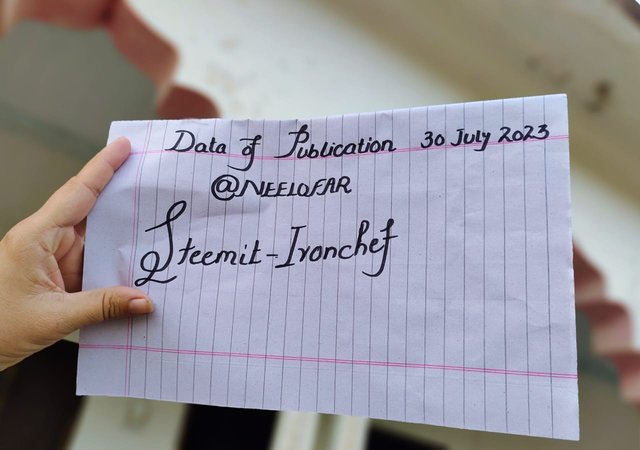 Data of Publication 30 July 2023
@NEELOFAR
Steemit-Ironchef